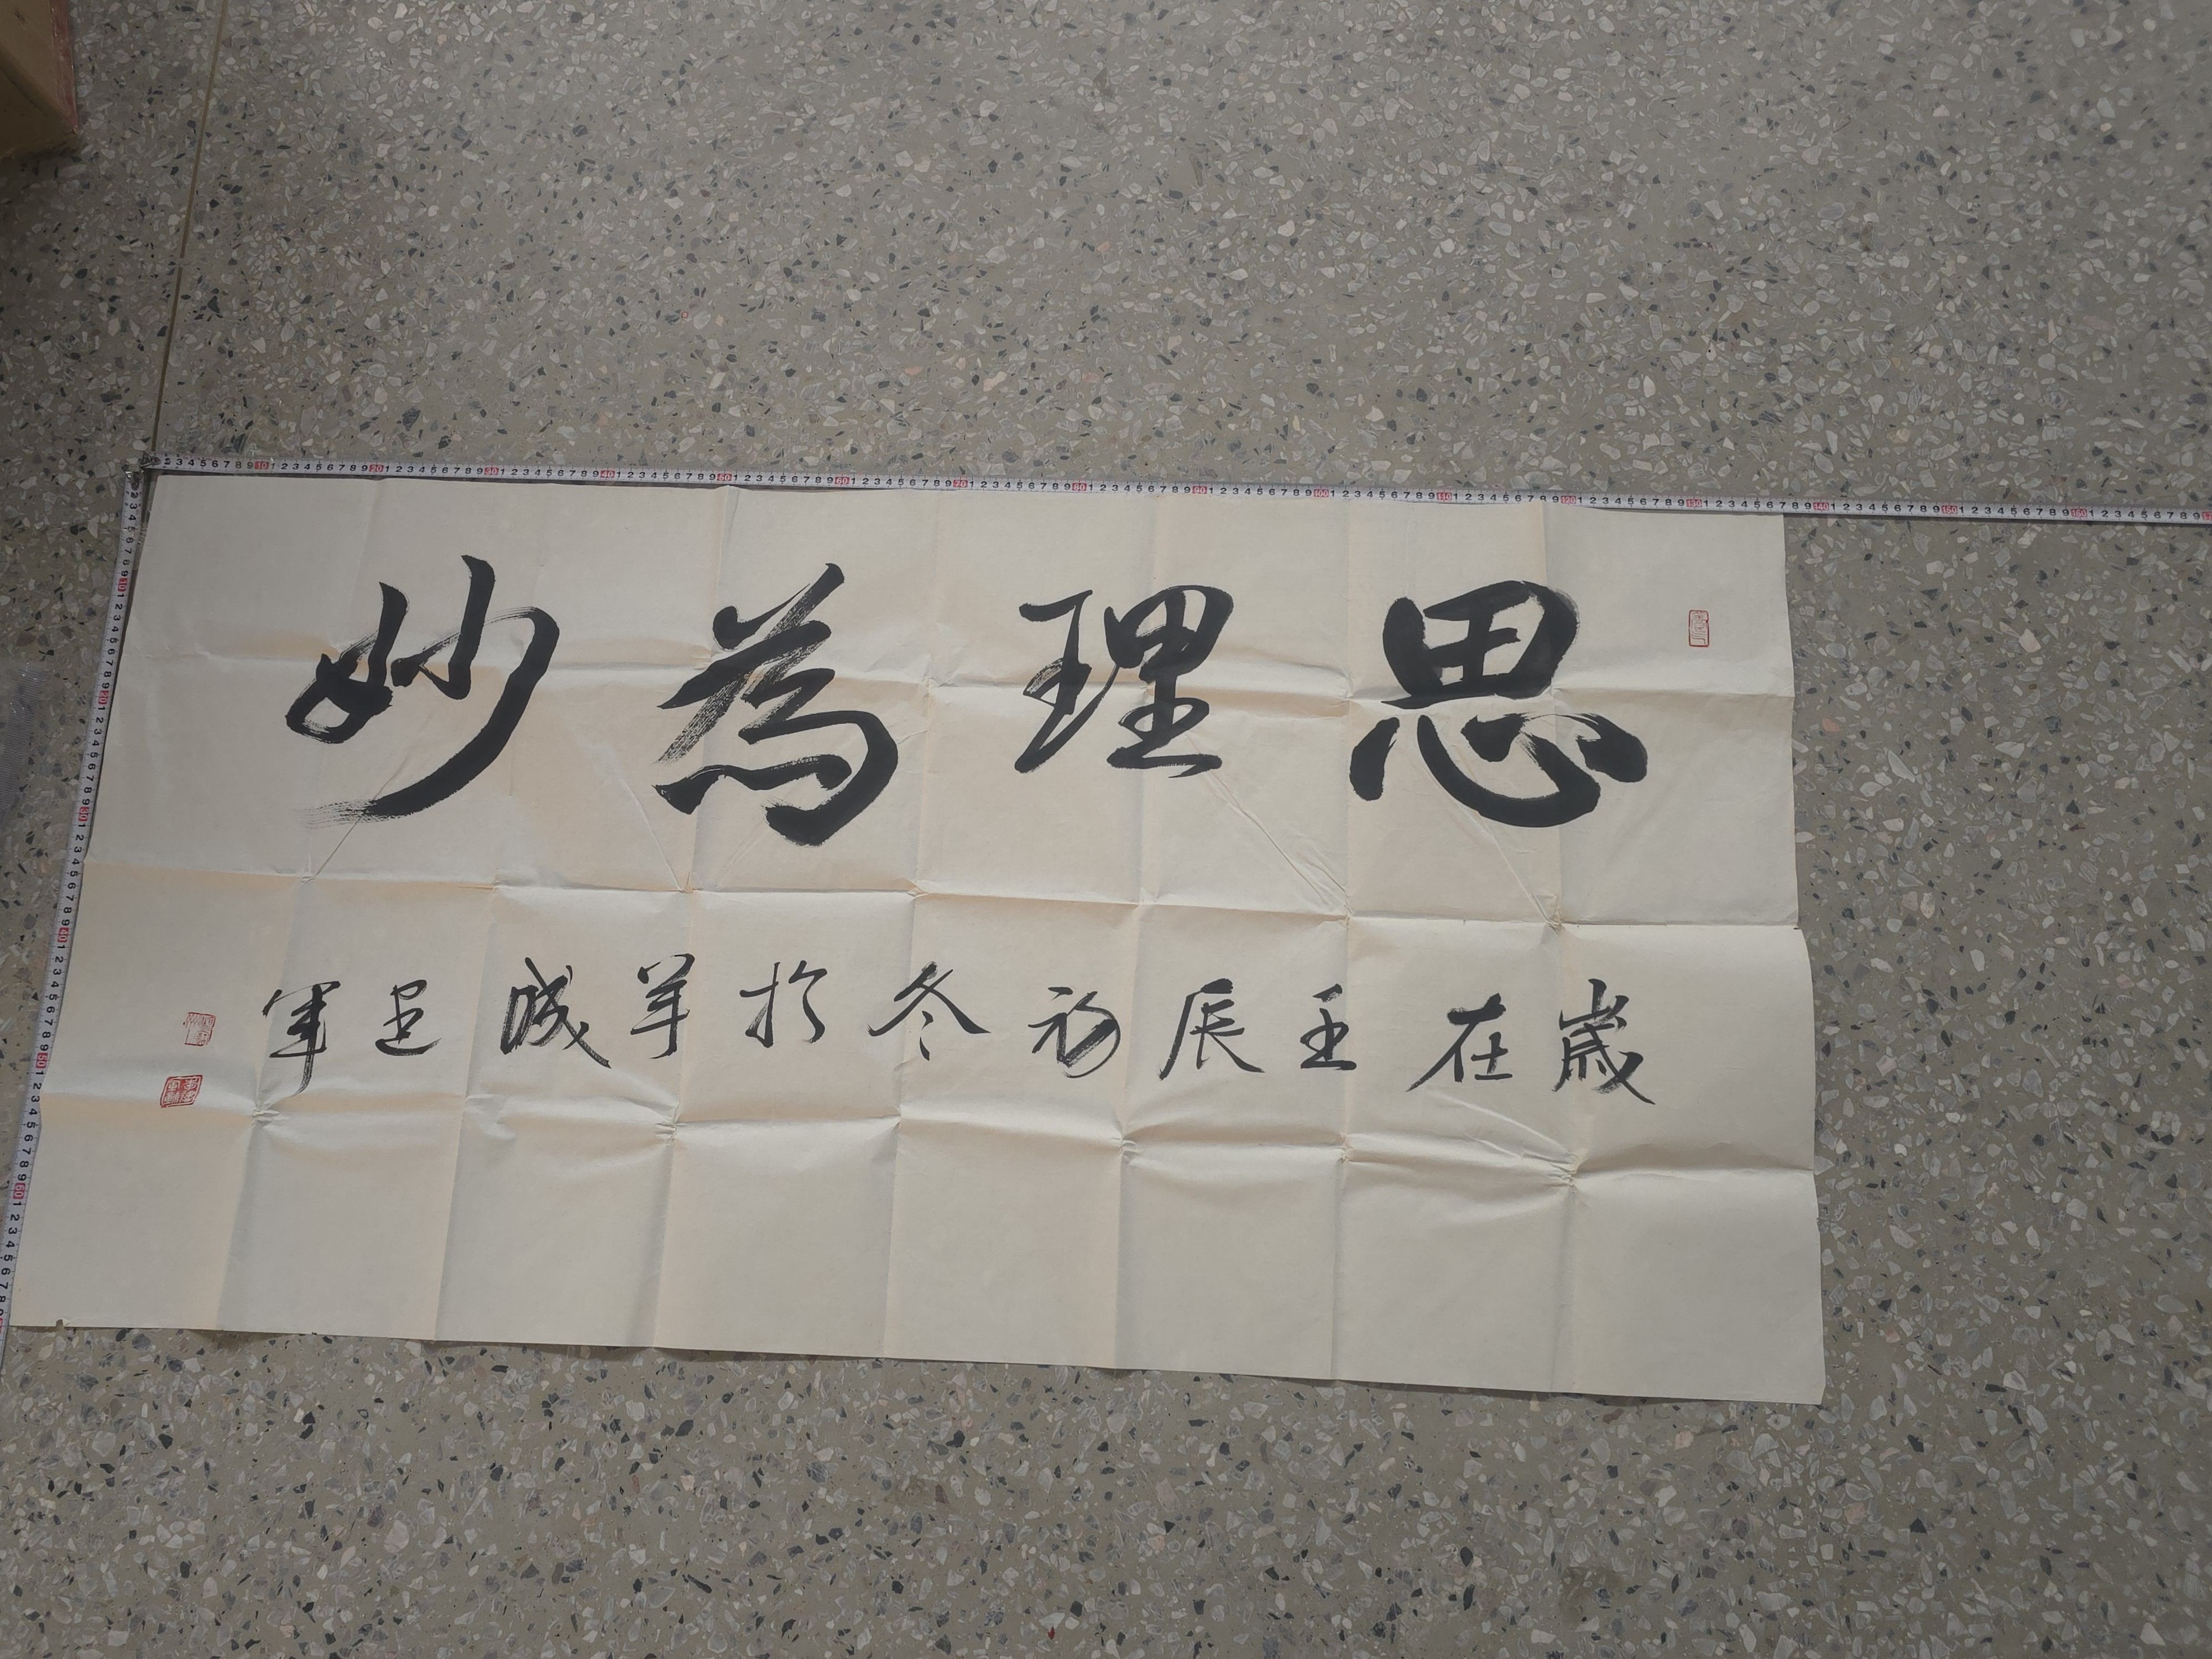 思理為妙
歲在壬辰初冬於羊城建軍